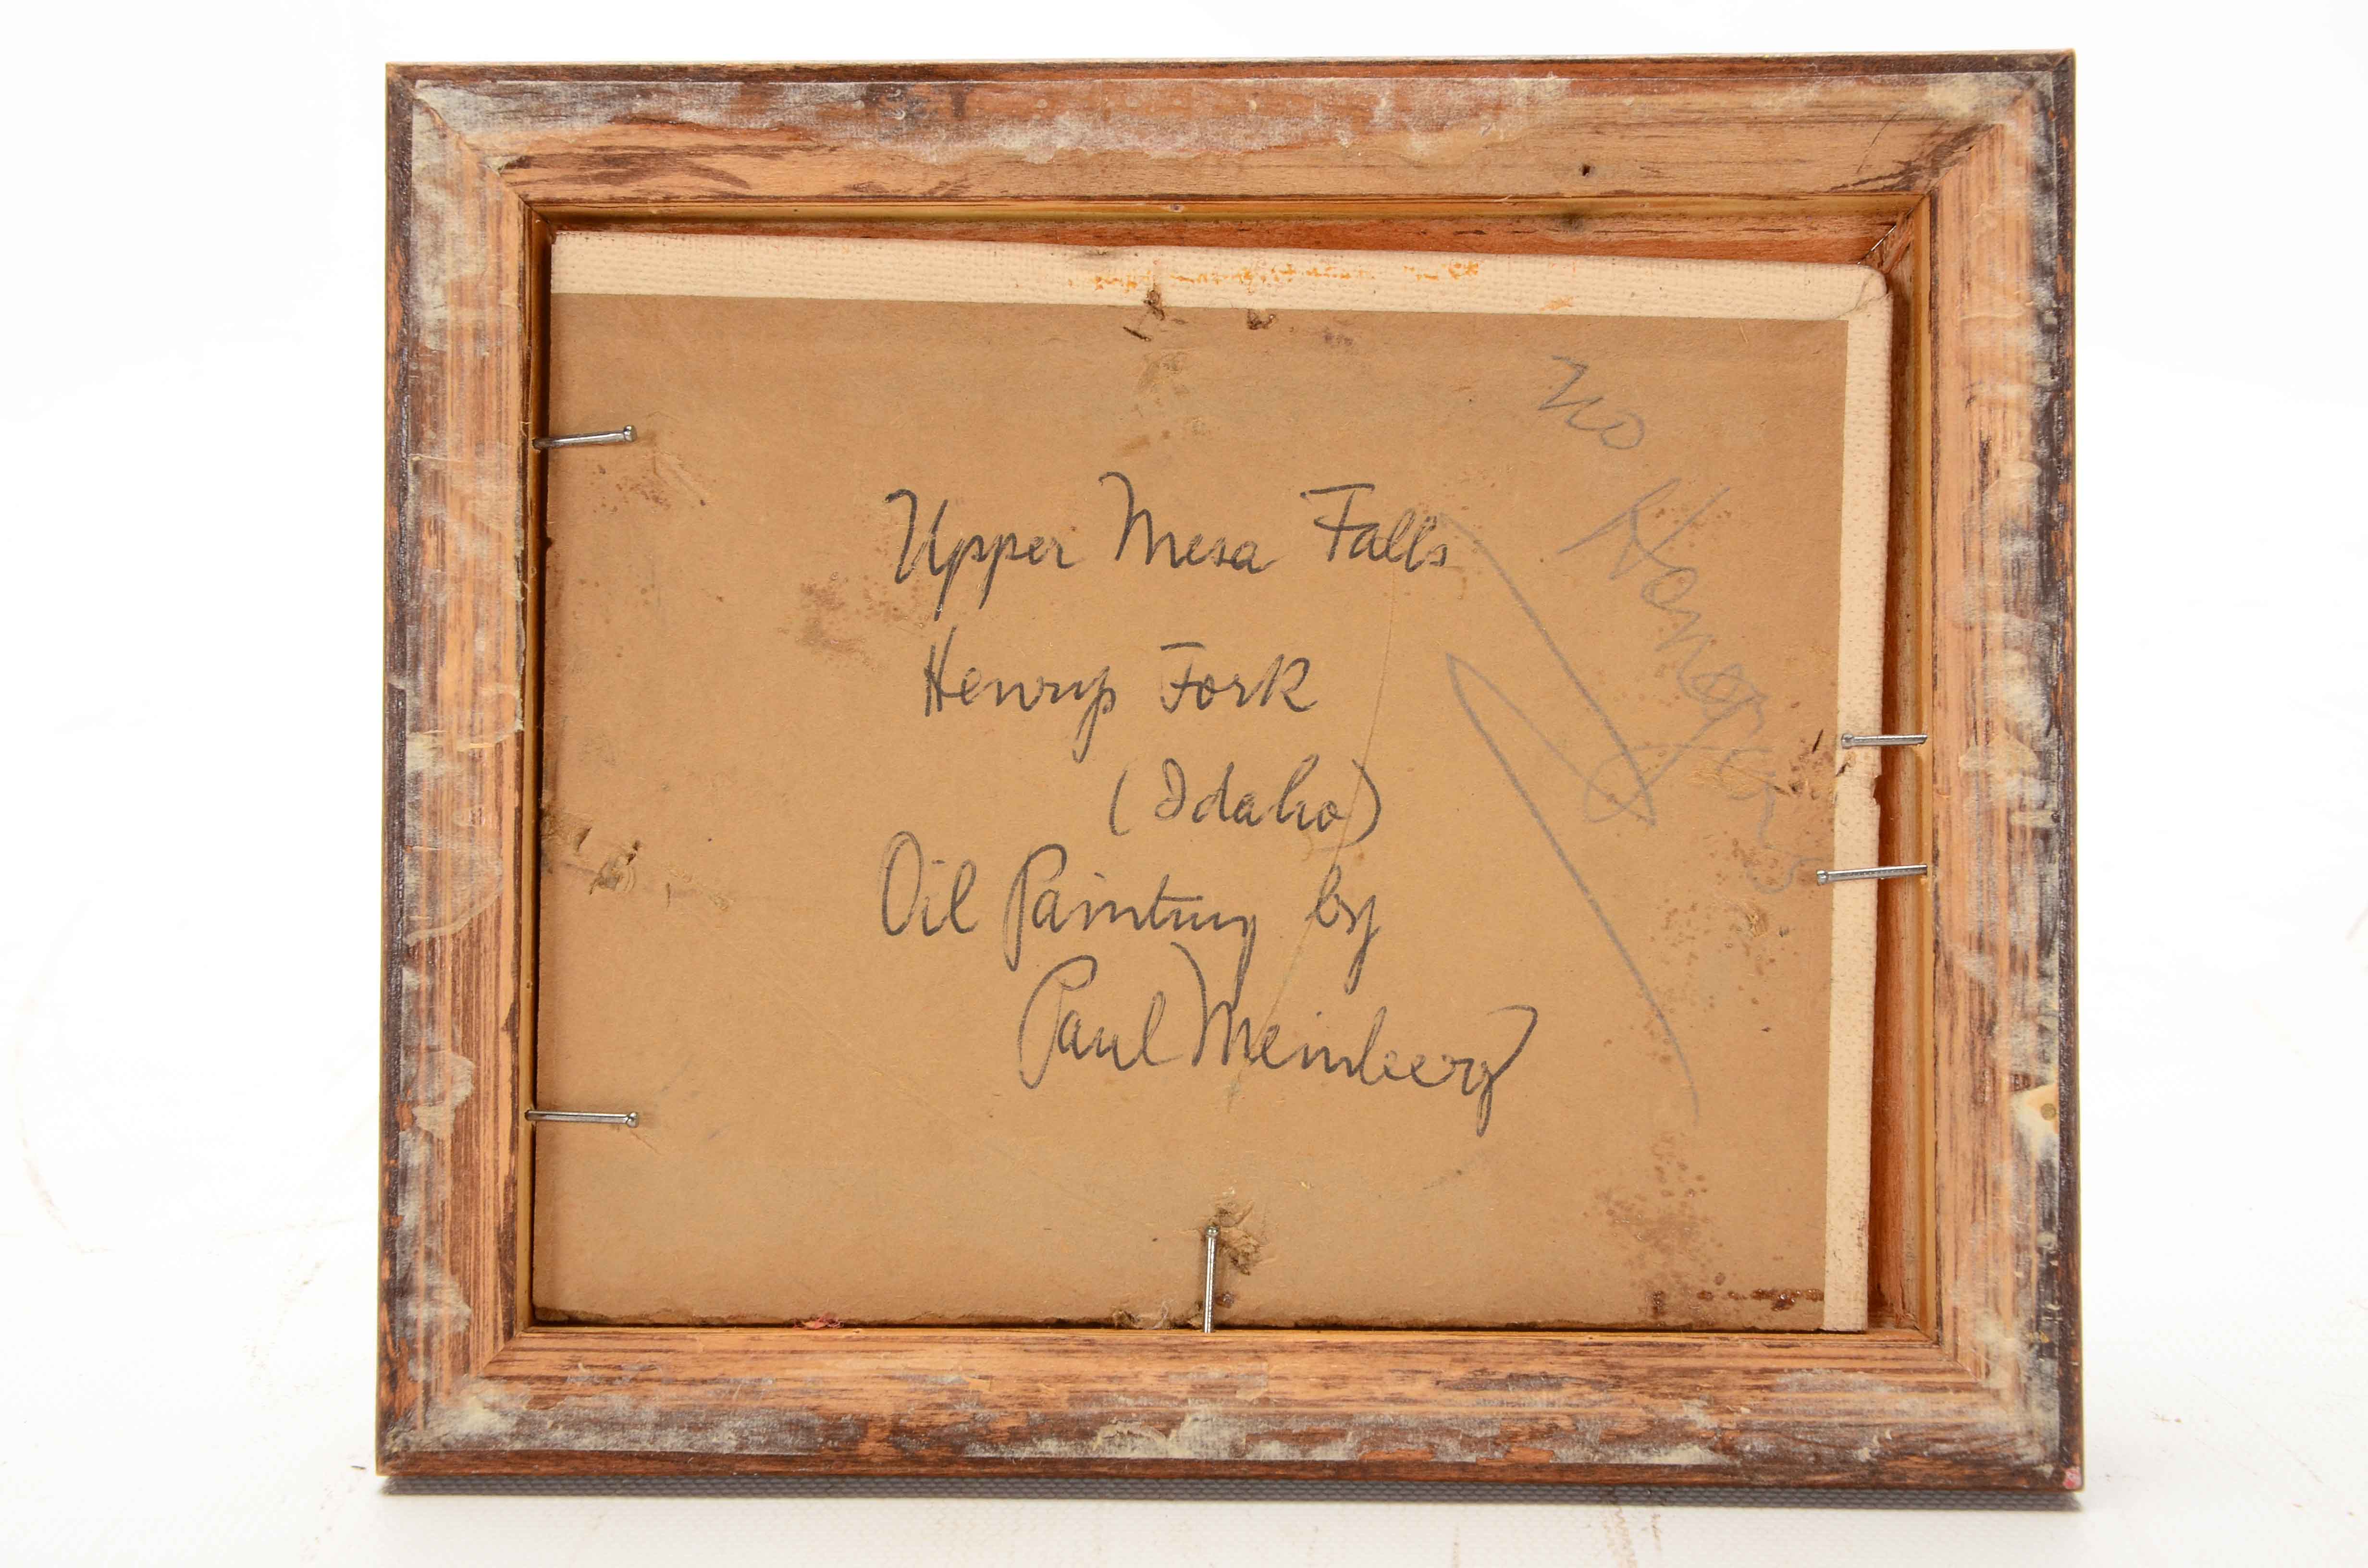 Upper Mesa Falls
Henrys Fork
(Idaho)
Oil Painting by
Paul Meinberg
no Hangers